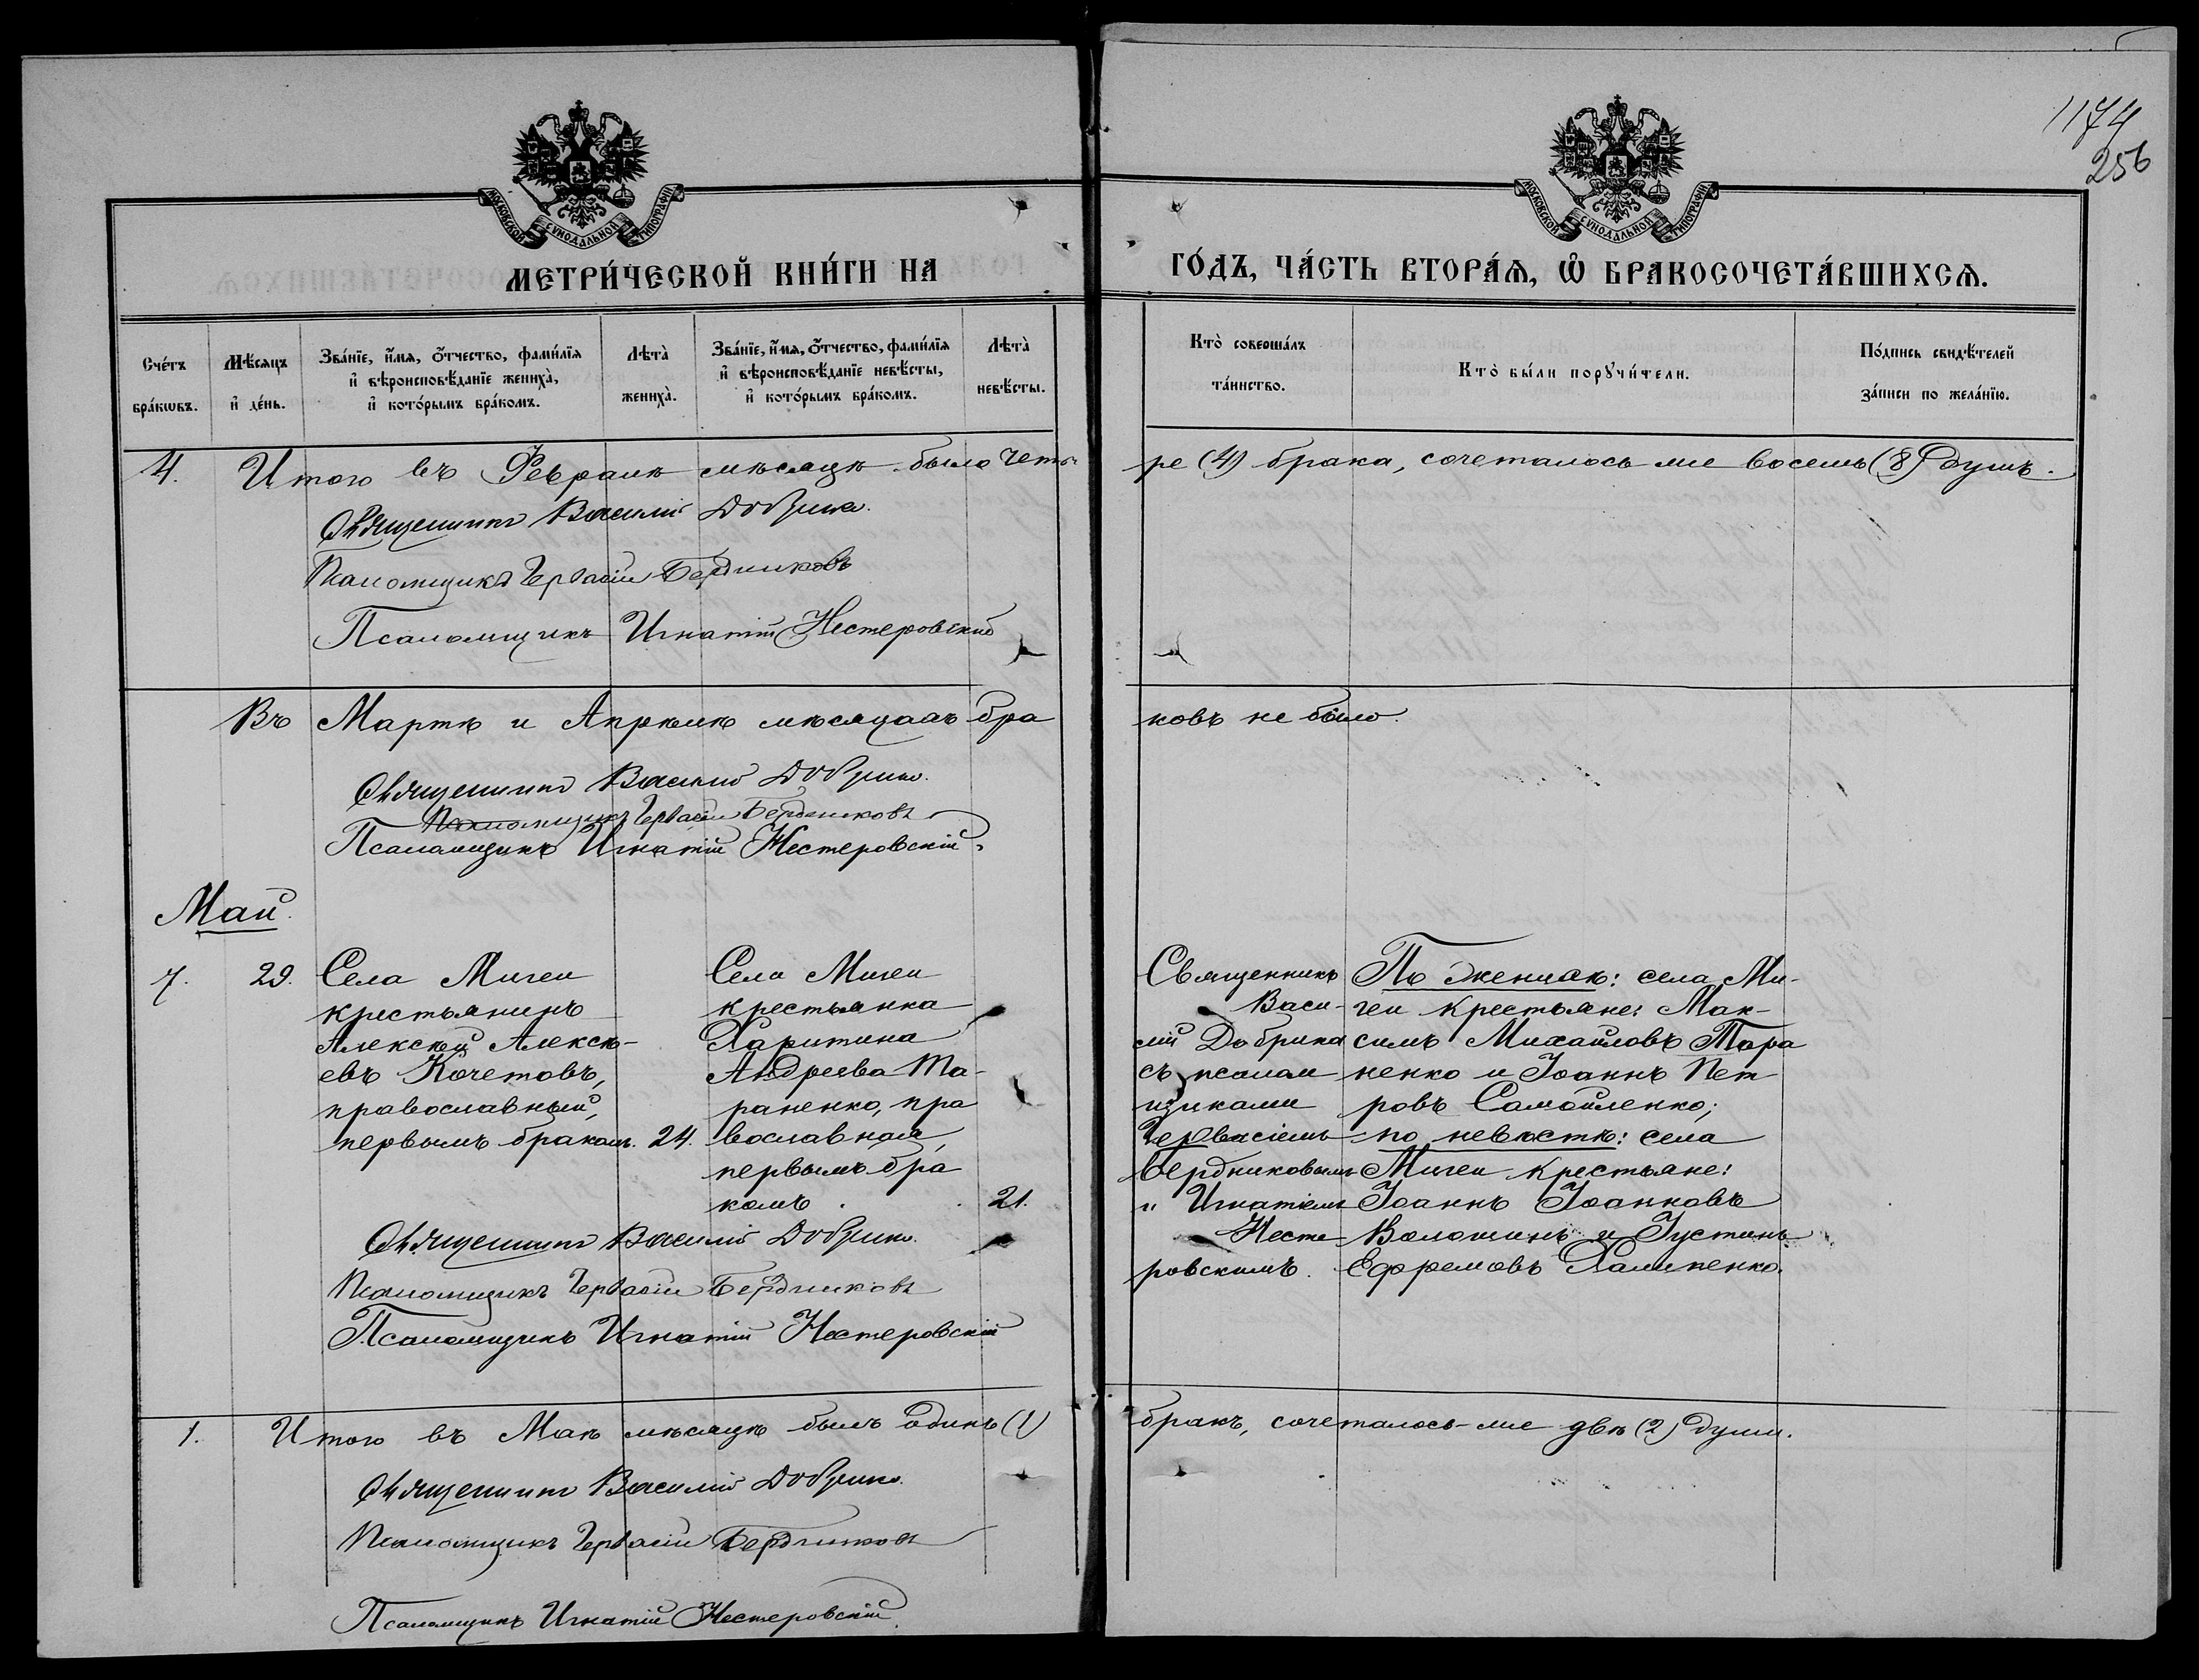 1174
256
МОСКОВСКОЙ СѴНОДАЛЬНОЙ ТИПОГРАФІИ
МОСКОВСКОЙ СѴНОДАЛЬНОЙ ТИПОГРАФІИ
МЕТРИ́ЧЕСКОЙ КНИ́ГИ НА
ГО́ДЪ, ЧА́СТЬ ВТОРА́Ѧ, Ѡ҆ БРАКОСОЧЕТА́ВШИХСѦ.
Сче́тъ
бра́кѡвъ.
Мѣ́сѧцъ
и҆ де́нь.
Зва́нїе, и҆́мѧ, ѻ҆́тчество, фами́лїѧ
и҆ вѣроисповѣ́данїе жениха̀,
и҆ кото́рымъ бра́комъ.
Лѣта̀
жениха̀.
Зва́нїе, и҆́мѧ, ѻ҆́тчество, фами́лїѧ
и҆ вѣроисповѣ́данїе невѣ́сты,
и҆ кото́рымъ бра́комъ.
Лѣта̀
невѣ́сты.
Кто̀ соверша́лъ
та́инство.
Кто̀ бы́ли порꙋчи́тели.
По́дпись свидѣ́телей
за́писи по жела́нїю.
4. Итого въ Февралѣ мѣсяцѣ было четы-
ре (4) брака, сочеталось же восемь (8) душъ.
Священникъ Василій Добрина.
Псаломщикъ Гервасій Бердниковъ
Псаломщикъ Игнатій Нестеровскій
Въ Мартѣ и Апрѣлѣ мѣсяцахъ бра
ковъ не было.
Священникъ Василій Добрина.
Псаломщикъ Гервасій Бердниковъ
Псаломщикъ Игнатій Нестеровскій.
Май.
7. 29. Села Мигеи
крестьянинъ
Алексѣй Алексѣ-
евъ Кочетовъ,
православный,
первымъ бракомъ. 24.
Села Мигеи
крестьянка
Харитина
Андреева Та-
раненко, пра
вославная,
первымъ бра
комъ. 21.
Священникъ
Васи-
лій Добрина
съ псалом
щиками
Гервасіемъ
Бердниковымъ
и Игнатіемъ
Несте
ровскимъ.
По женихѣ: села Ми-
геи крестьяне: Мак-
симъ Михаиловъ Тара
ненко и Іоаннъ Пет
ровъ Самойленко;
по невѣстѣ: села
Мигеи крестьяне:
Іоаннъ Іоанновъ
Волошинъ и Іустинъ
Ефремовъ Халипенко.
Священникъ Василій Добрина.
Псаломщикъ Гервасій Бердниковъ
Псаломщикъ Игнатій Нестеровскій
1. Итого въ Маѣ мѣсяцѣ былъ одинъ (1)
бракъ, сочеталось же двѣ (2) души.
Священникъ Василій Добрина.
Псаломщикъ Гервасій Бердниковъ
Псаломщикъ Игнатій Нестеровскій.